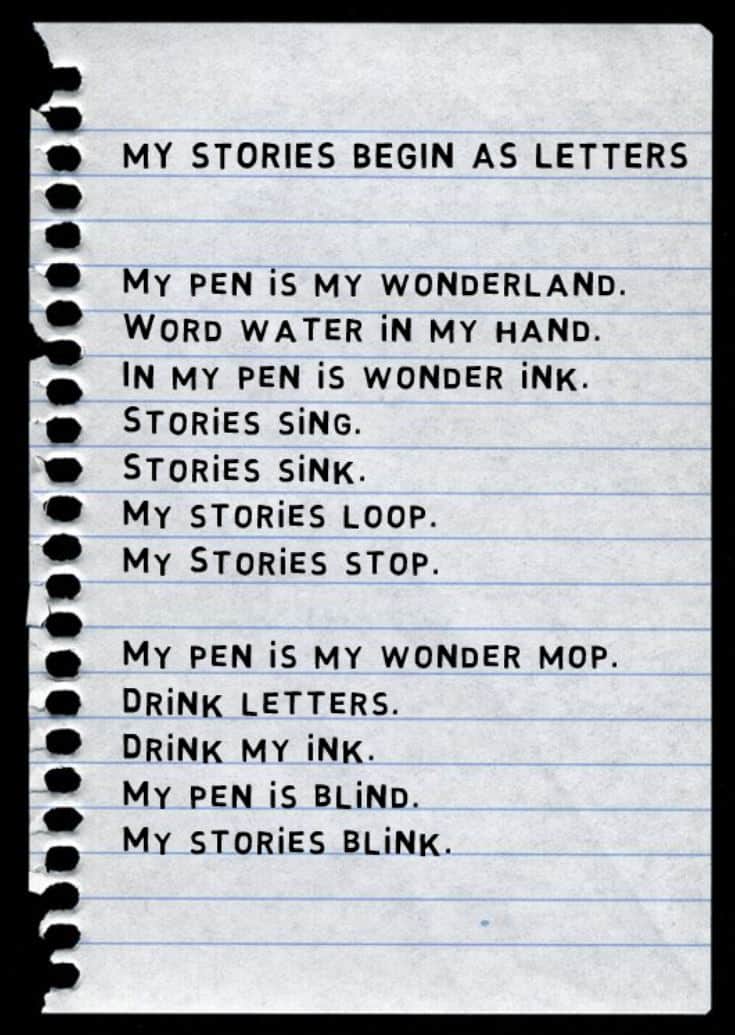 MY STORIES BEGIN AS LETTERS
My PEN iS MY WONDERLAND.
WORD WATER iN MY HAND.
IN MY PEN iS WONDER iNK.
STORiES SiNG.
STORiES SiNK.
MY STORiES LOOP.
MY STORiES STOP.
MY PEN iS MY WONDER MOP.
DRiNK LETTERS.
DRiNK MY iNK.
MY PEN iS BLiND.
MY STORiES BLiNK.